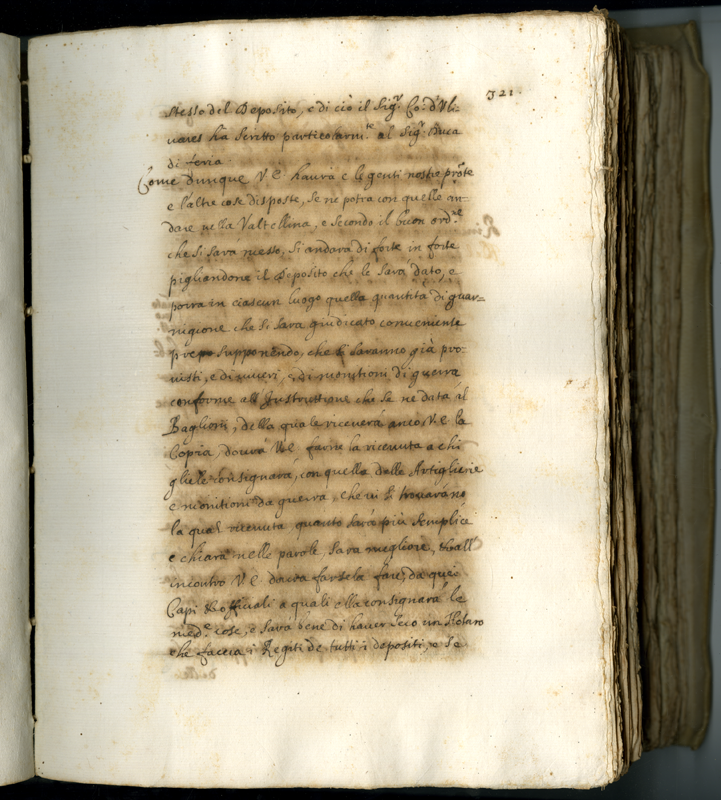 321.
stesso del Deposito, e di ciò il Sig.r Co: d'Oli-
uares ha scritto particolarm.te al Sig.r Duca
di feria.
Come dunque V.E. haurà e le genti nostre pronte
e l'altre cose disposte, se ne potrà con quelle an-
dare nella Valtellina, e secondo il buon ord.ne
che si sarà messo, si andarà di forte in forte
pigliandone il Deposito che le sarà dato, e
porrà in ciascun luogo quella quantità di guar-
nigione che si sarà giudicato conueniente
supponendo, che si saranno già pro-
uisti, e di uiueri, e di monitioni di guerra
conforme all'Instruttione che se ne data al
Baglioni, della quale riceuerà anco V.E. la
Copia, dourà V.E. farne la riceuuta a chi
gliele consignarà, con quella delle Artiglierie
e monitioni da guerra, che ui si trouaràno
la qual riceuuta quanto sarà più semplice
e chiara nelle parole, sarà megliore, et all'
incontro V.E. dourà farsela fare, da quei
Capi et officiali a quali ella consignarà le
med.e cose, e sarà bene di hauer seco un Notaro
che faccia i Rogiti de tutti i depositi, e se